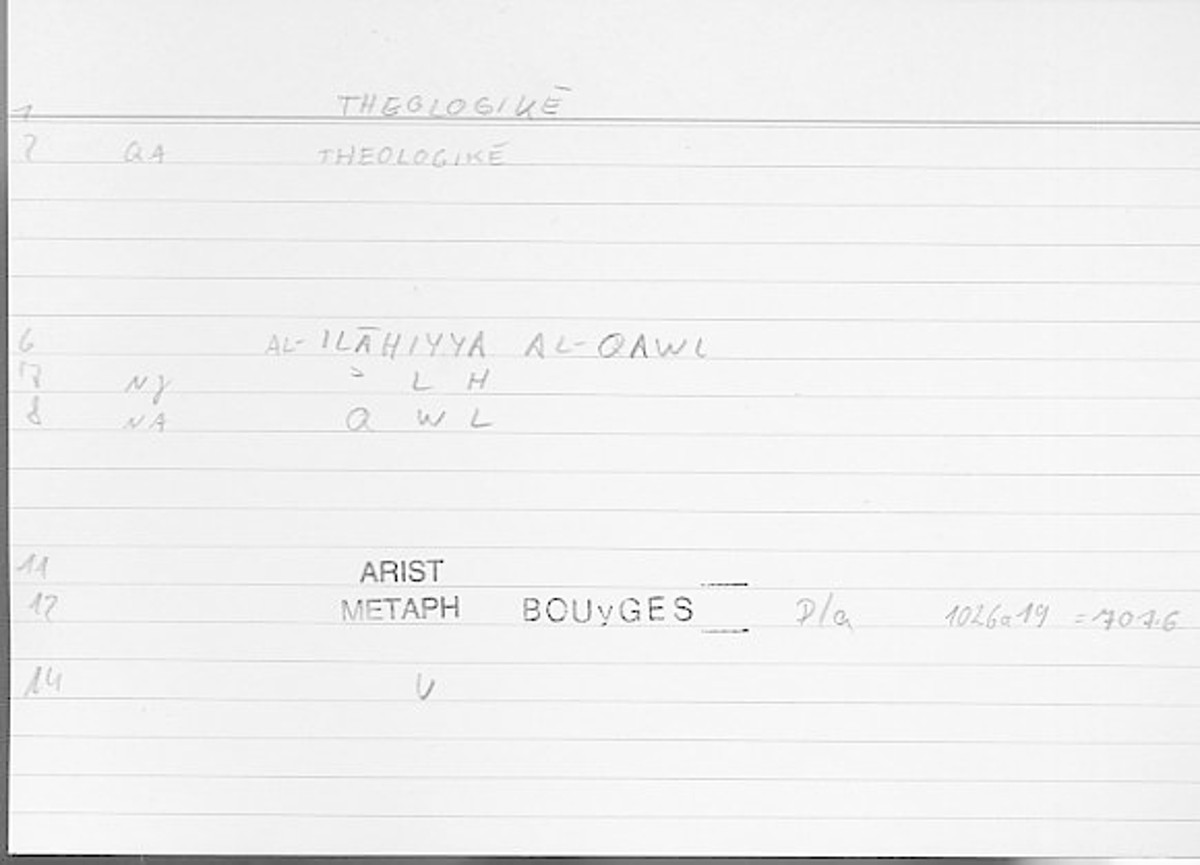 1 THEOLOGIKĒ
2 QA THEOLOGIKĒ
6 AL-ILĀHIYYA AL-QAWL
7 NJ ʾ L H
8 NA Q W L
11 ARIST
12 METAPH BOUyGES D/a 1026a19 = 707.6
14 V